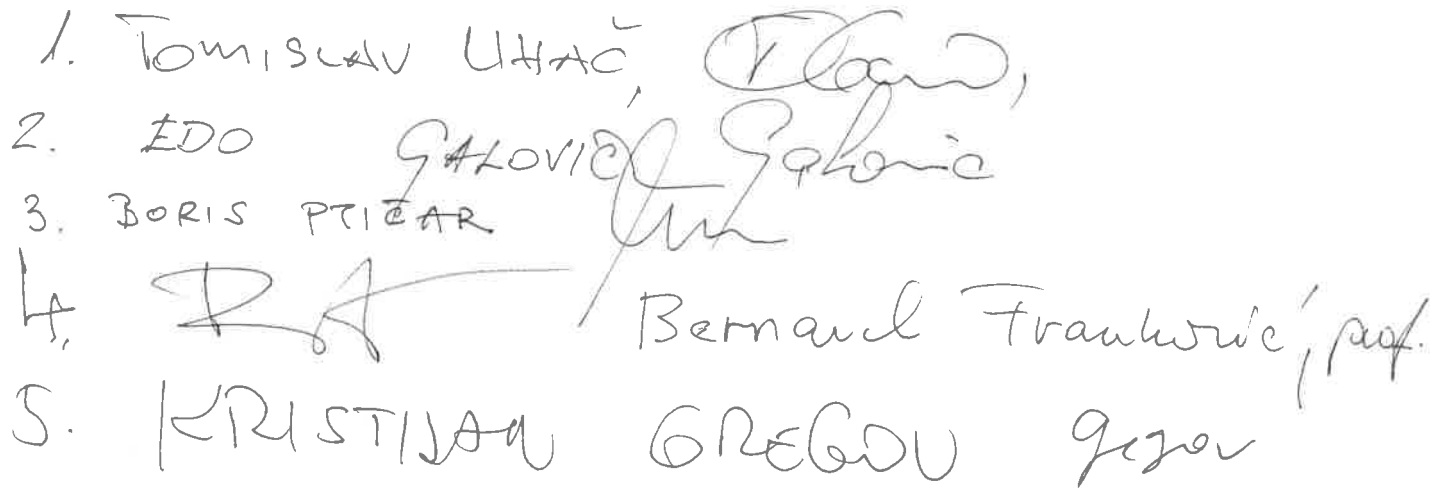 1. TOMISLAV UHAČ,
2. EDO GALOVIĆ Galovic
3. BORIS PTIČAR
4. Bernard Franković, prof.
5. KRISTIJAN GREGOV